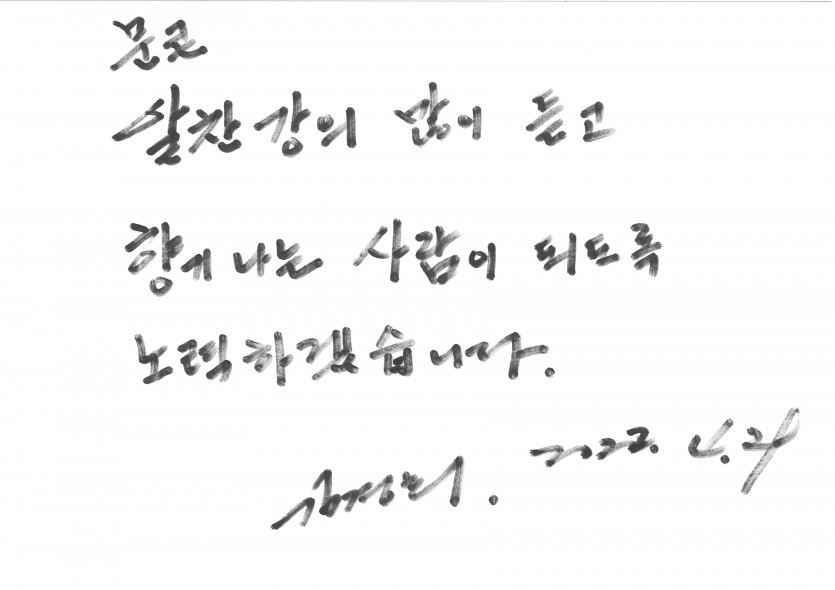 문고
알찬강의 많이 듣고
향기 나는 사람이 되도록
노력하겠습니다.
2022. 4. 29